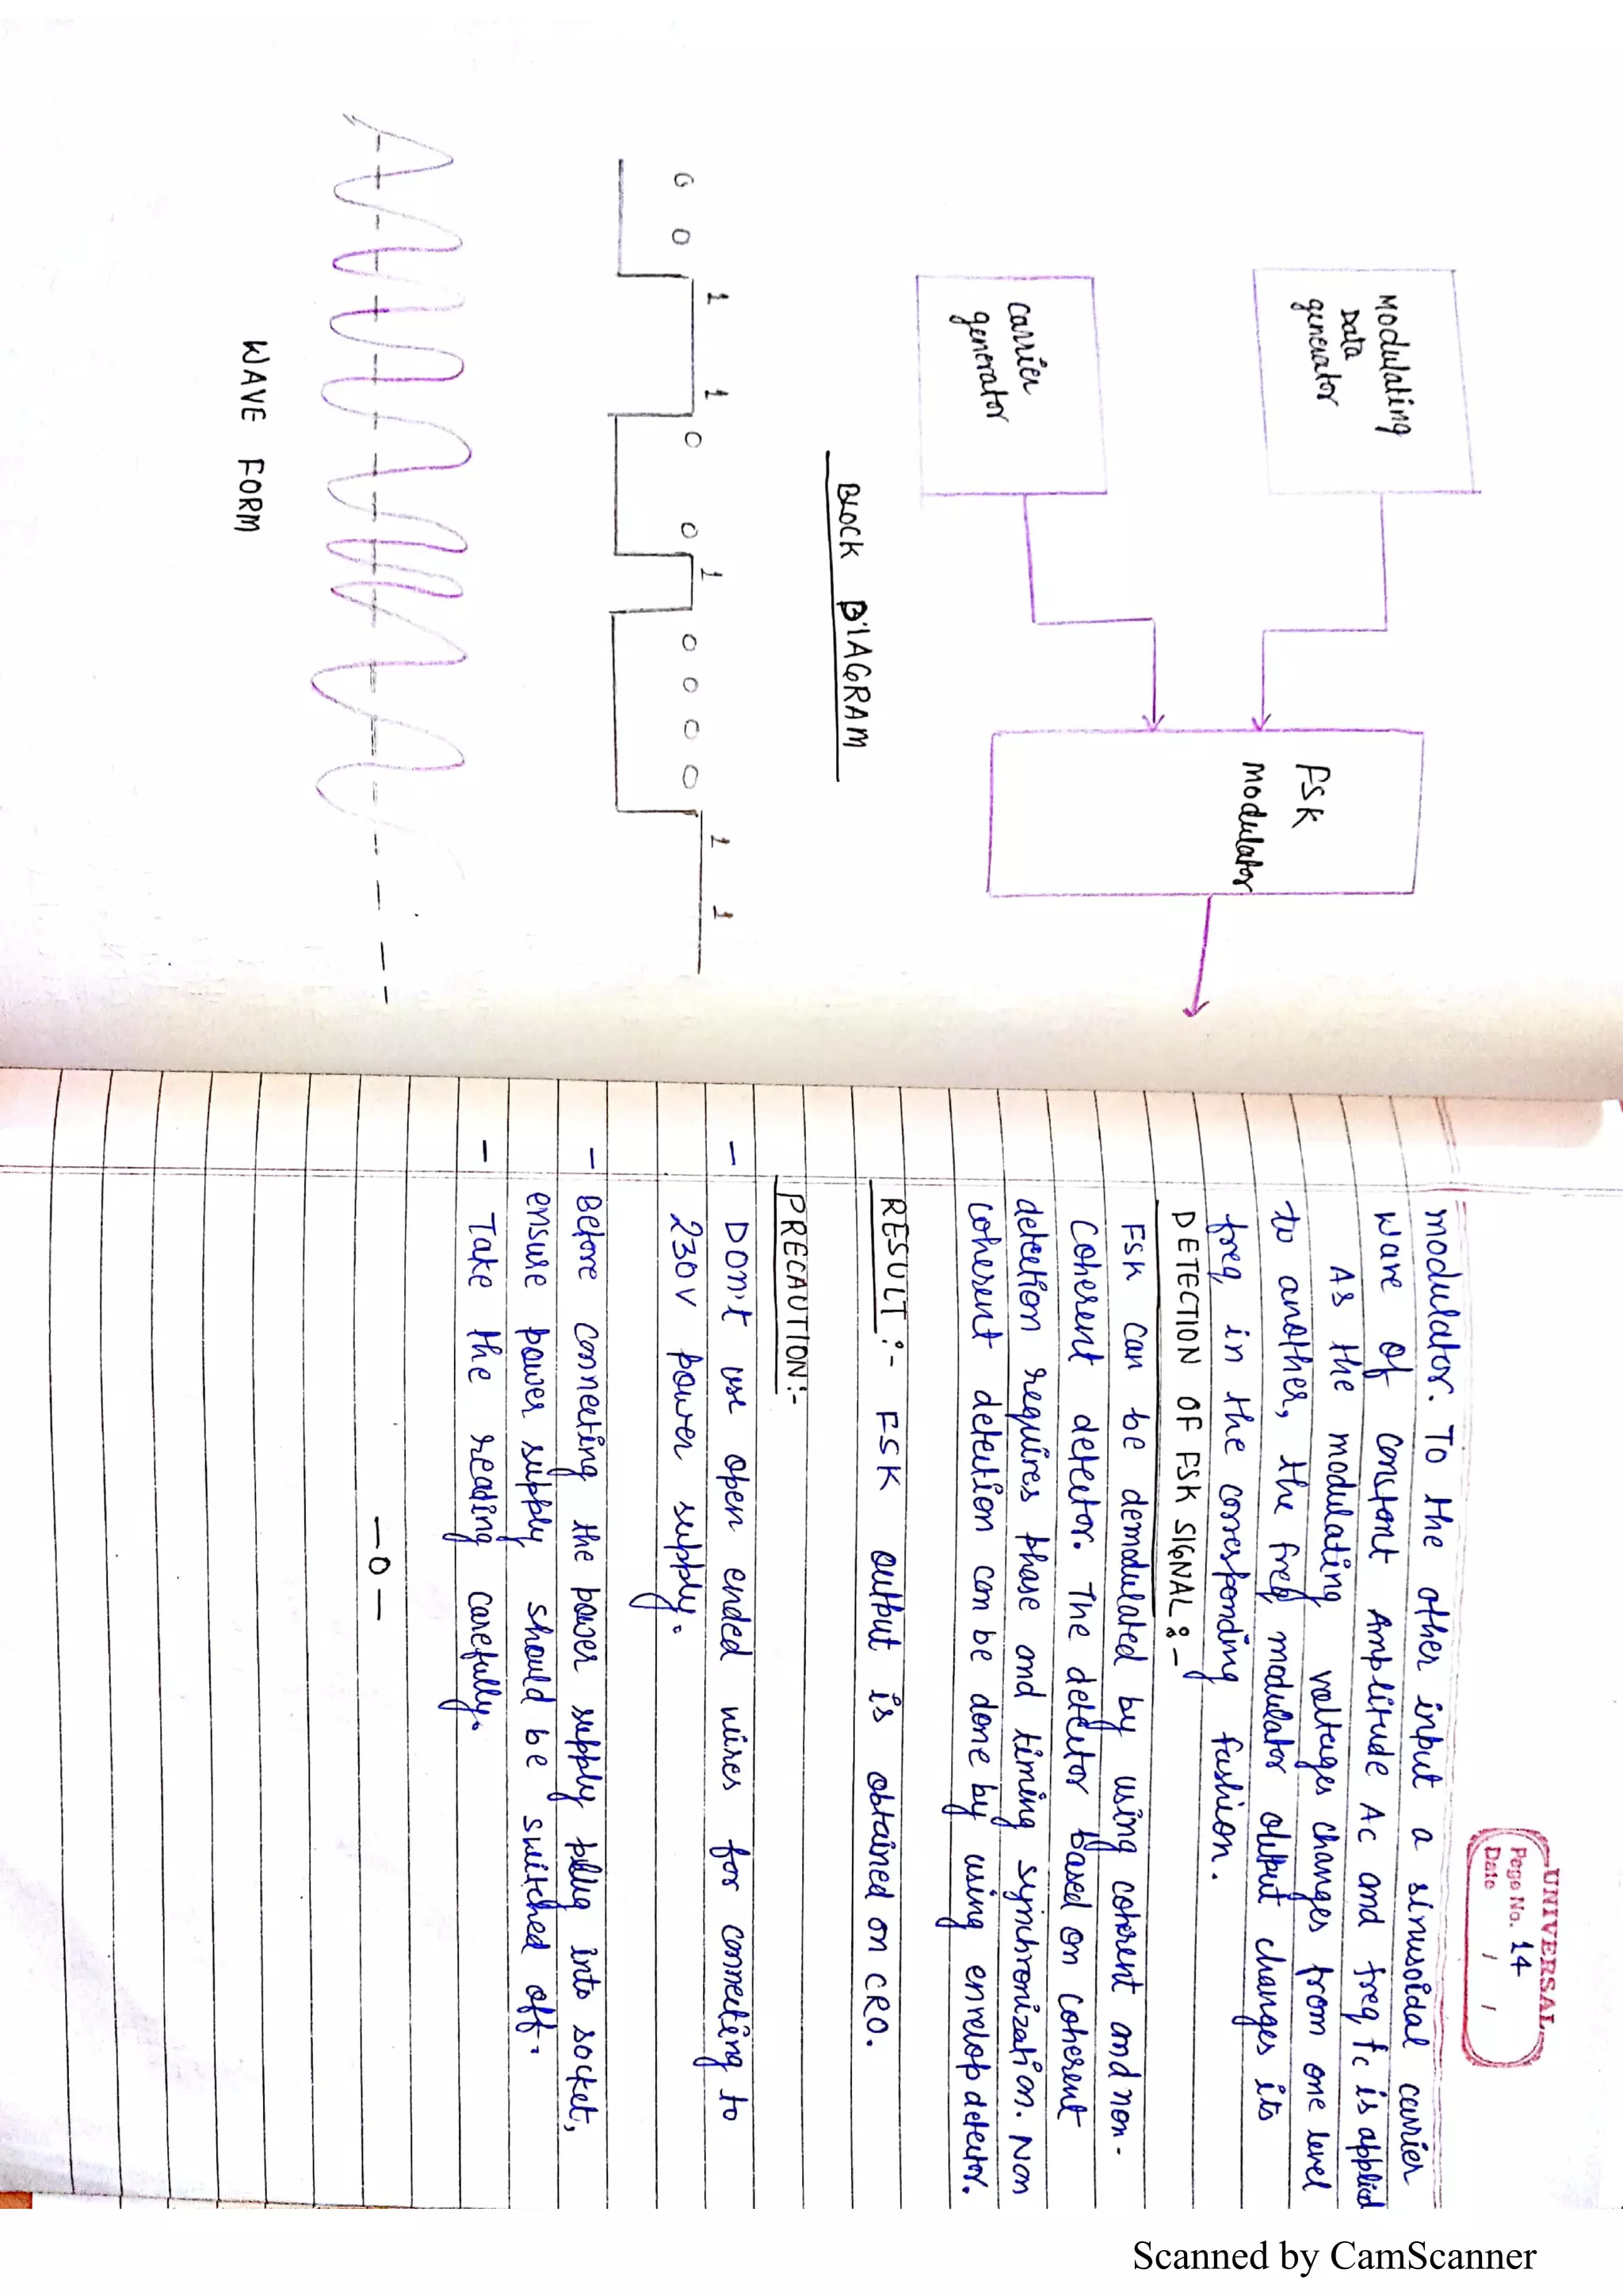 Modulating
Data
generator
Carrier
generator
FSK
Modulator
BLOCK DIAGRAM
0 0 1 1 0 0 1 0 0 0 0 1 1
WAVE FORM
UNIVERSAL
Page No. 14
Date / /
modulator. To the other input a sinusoidal carrier
ware of constant Amplitude Ac and freq fc is applied
As the modulating voltages changes from one level
to another, the freq modulator output changes its
freq in the corresponding fashion.
DETECTION OF FSK SIGNAL:-
FSK can be demodulated by using coherent and non-
coherent detector. The detector based on coherent
detection requires phase and timing synchronization. Non
coherent detection can be done by using envelop detector.
RESULT:- FSK output is obtained on CRO.
PRECAUTION:-
- DON't use open ended wires for connecting to
230V power supply.
- Before connecting the power supply plug into socket,
ensure power supply should be switched off.
- Take the reading carefully.
—0—
Scanned by CamScanner